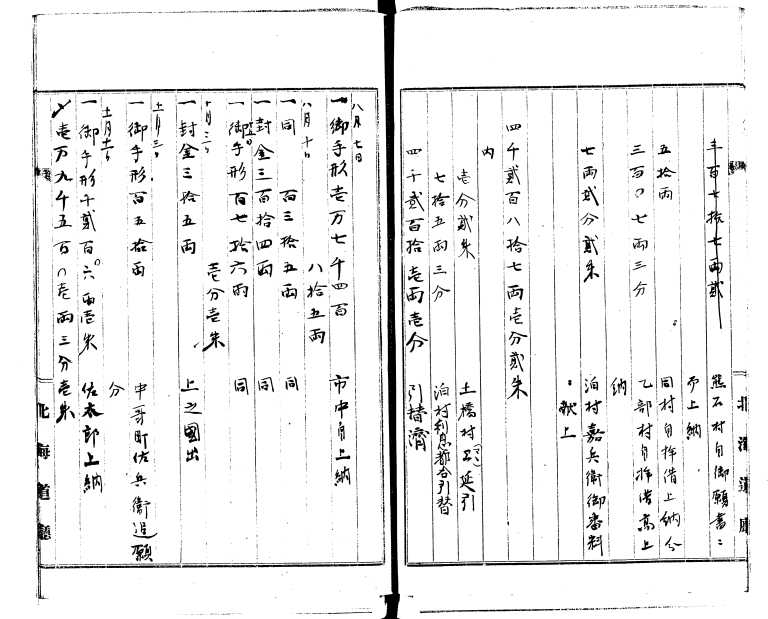 三百七拾七両貳
熊石村ゟ御願書ニ
而上納
五拾両
同村ゟ拝借上納分
三百〇七両三分
乙部村ゟ拝借高上
納
七両貳分貳朱
泊村嘉兵衛御番料
献上
四千貳百八拾七両壱分貳朱
内
壱分貳朱
土橋村延引
七拾五両三分
泊村利息都合引替
四千貳百拾壱両壱分
引替濟
北海道廳
八月七日
一御手形壱万七千四百
八拾五両
市中ゟ上納
八月十日
一同 百三拾五両 同
一封金三百拾四両 同
一御手形百七拾六両
壱分壱朱
同
十月三日
一封金三拾五両
上之國出
十一月三日
一御手形百五拾両
中哥町佐兵衛追願
分
十一月十一日
一御手形千貳百六〇両壱朱
佐太郎上納
〆壱万九千五百〇壱両三分壱朱
北海道廳